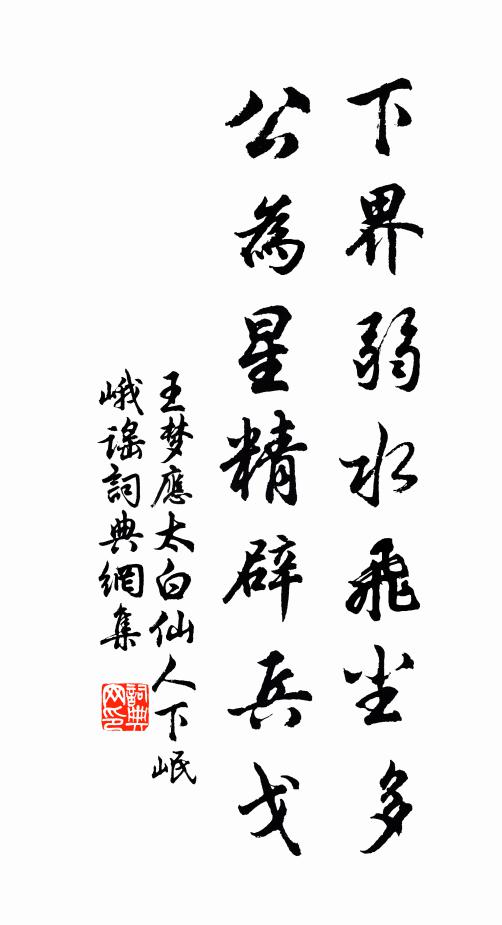 下界弱水飛尘多
公為星精辟兵戈
王梦應太白仙人下岷
峨謠詞典網集
詞典
网印